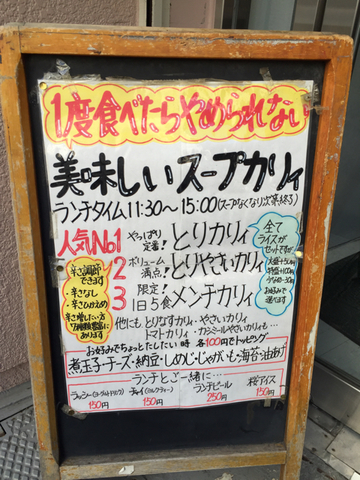 1度食べたらやめられない
美味しいスープカリィ
ランチタイム11:30～15:00(スープなくなり次第終了)
人気No.1 やっぱり定番! とりカリィ
2 ボリューム満点! とりやさいカリィ
3 限定! 1日5食 メンチカリィ
他にも とりなすカリィ・やさいカリィ
トマトカリィ・カシミールやさいカリィも…
辛さ調節
できます
・辛さなし
・辛さひかえめ
辛さ増したい方
あります
全て
ライスが
セットですが
大盛+50円
特盛+100円
お好みで
選べます
お好みでちょっとたしたい時 各100円でトッピング
煮玉子・チーズ・納豆・しめじ・じゃがいも・海苔・油あげ
ランチとご一緒に…
ラッシー(ヨーグルトドリンク) 150円
チャイ(ミルクティー) 150円
ランチビール 250円
桜アイス 150円